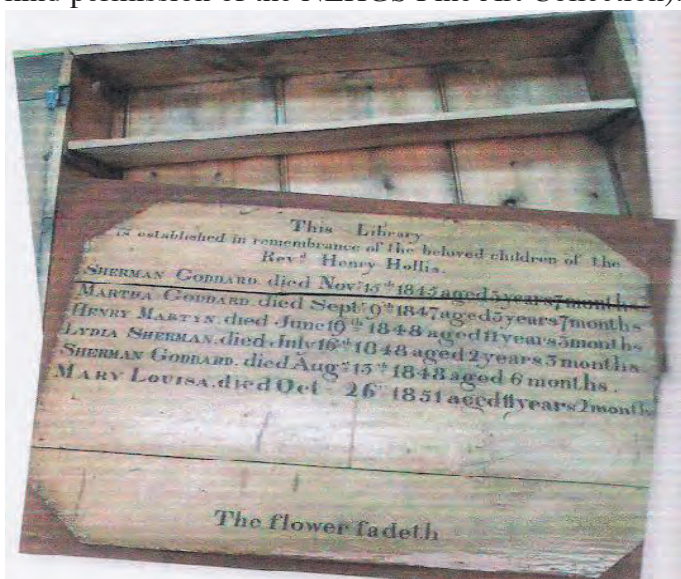 kind permission of the NEHGS Fine Art Collection).
This Library
is established in remembrance of the beloved children of the
Revd Henry Hollis.
SHERMAN GODDARD. died Nov. 15th 1845 aged 5 years 7 months.
MARTHA GODDARD. died Sept. 9th 1847 aged 5 years 7 months
HENRY MARTYN. died June 19th 1848 aged 11 years 5 months
LYDIA SHERMAN. died July 16th 1848 aged 2 years 3 months.
SHERMAN GODDARD. died Aug. 15th 1848 aged 6 months.
MARY LOUISA. died Oct 26th 1851 aged 11 years 2 months
The flower fadeth